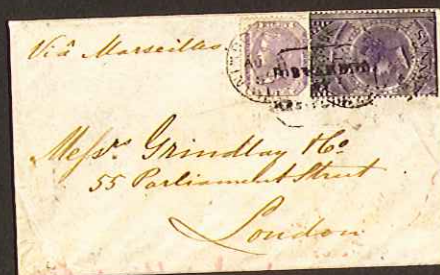 Viâ Marseilles
Messrs. Grindlay & Co
55 Parliament Street
London